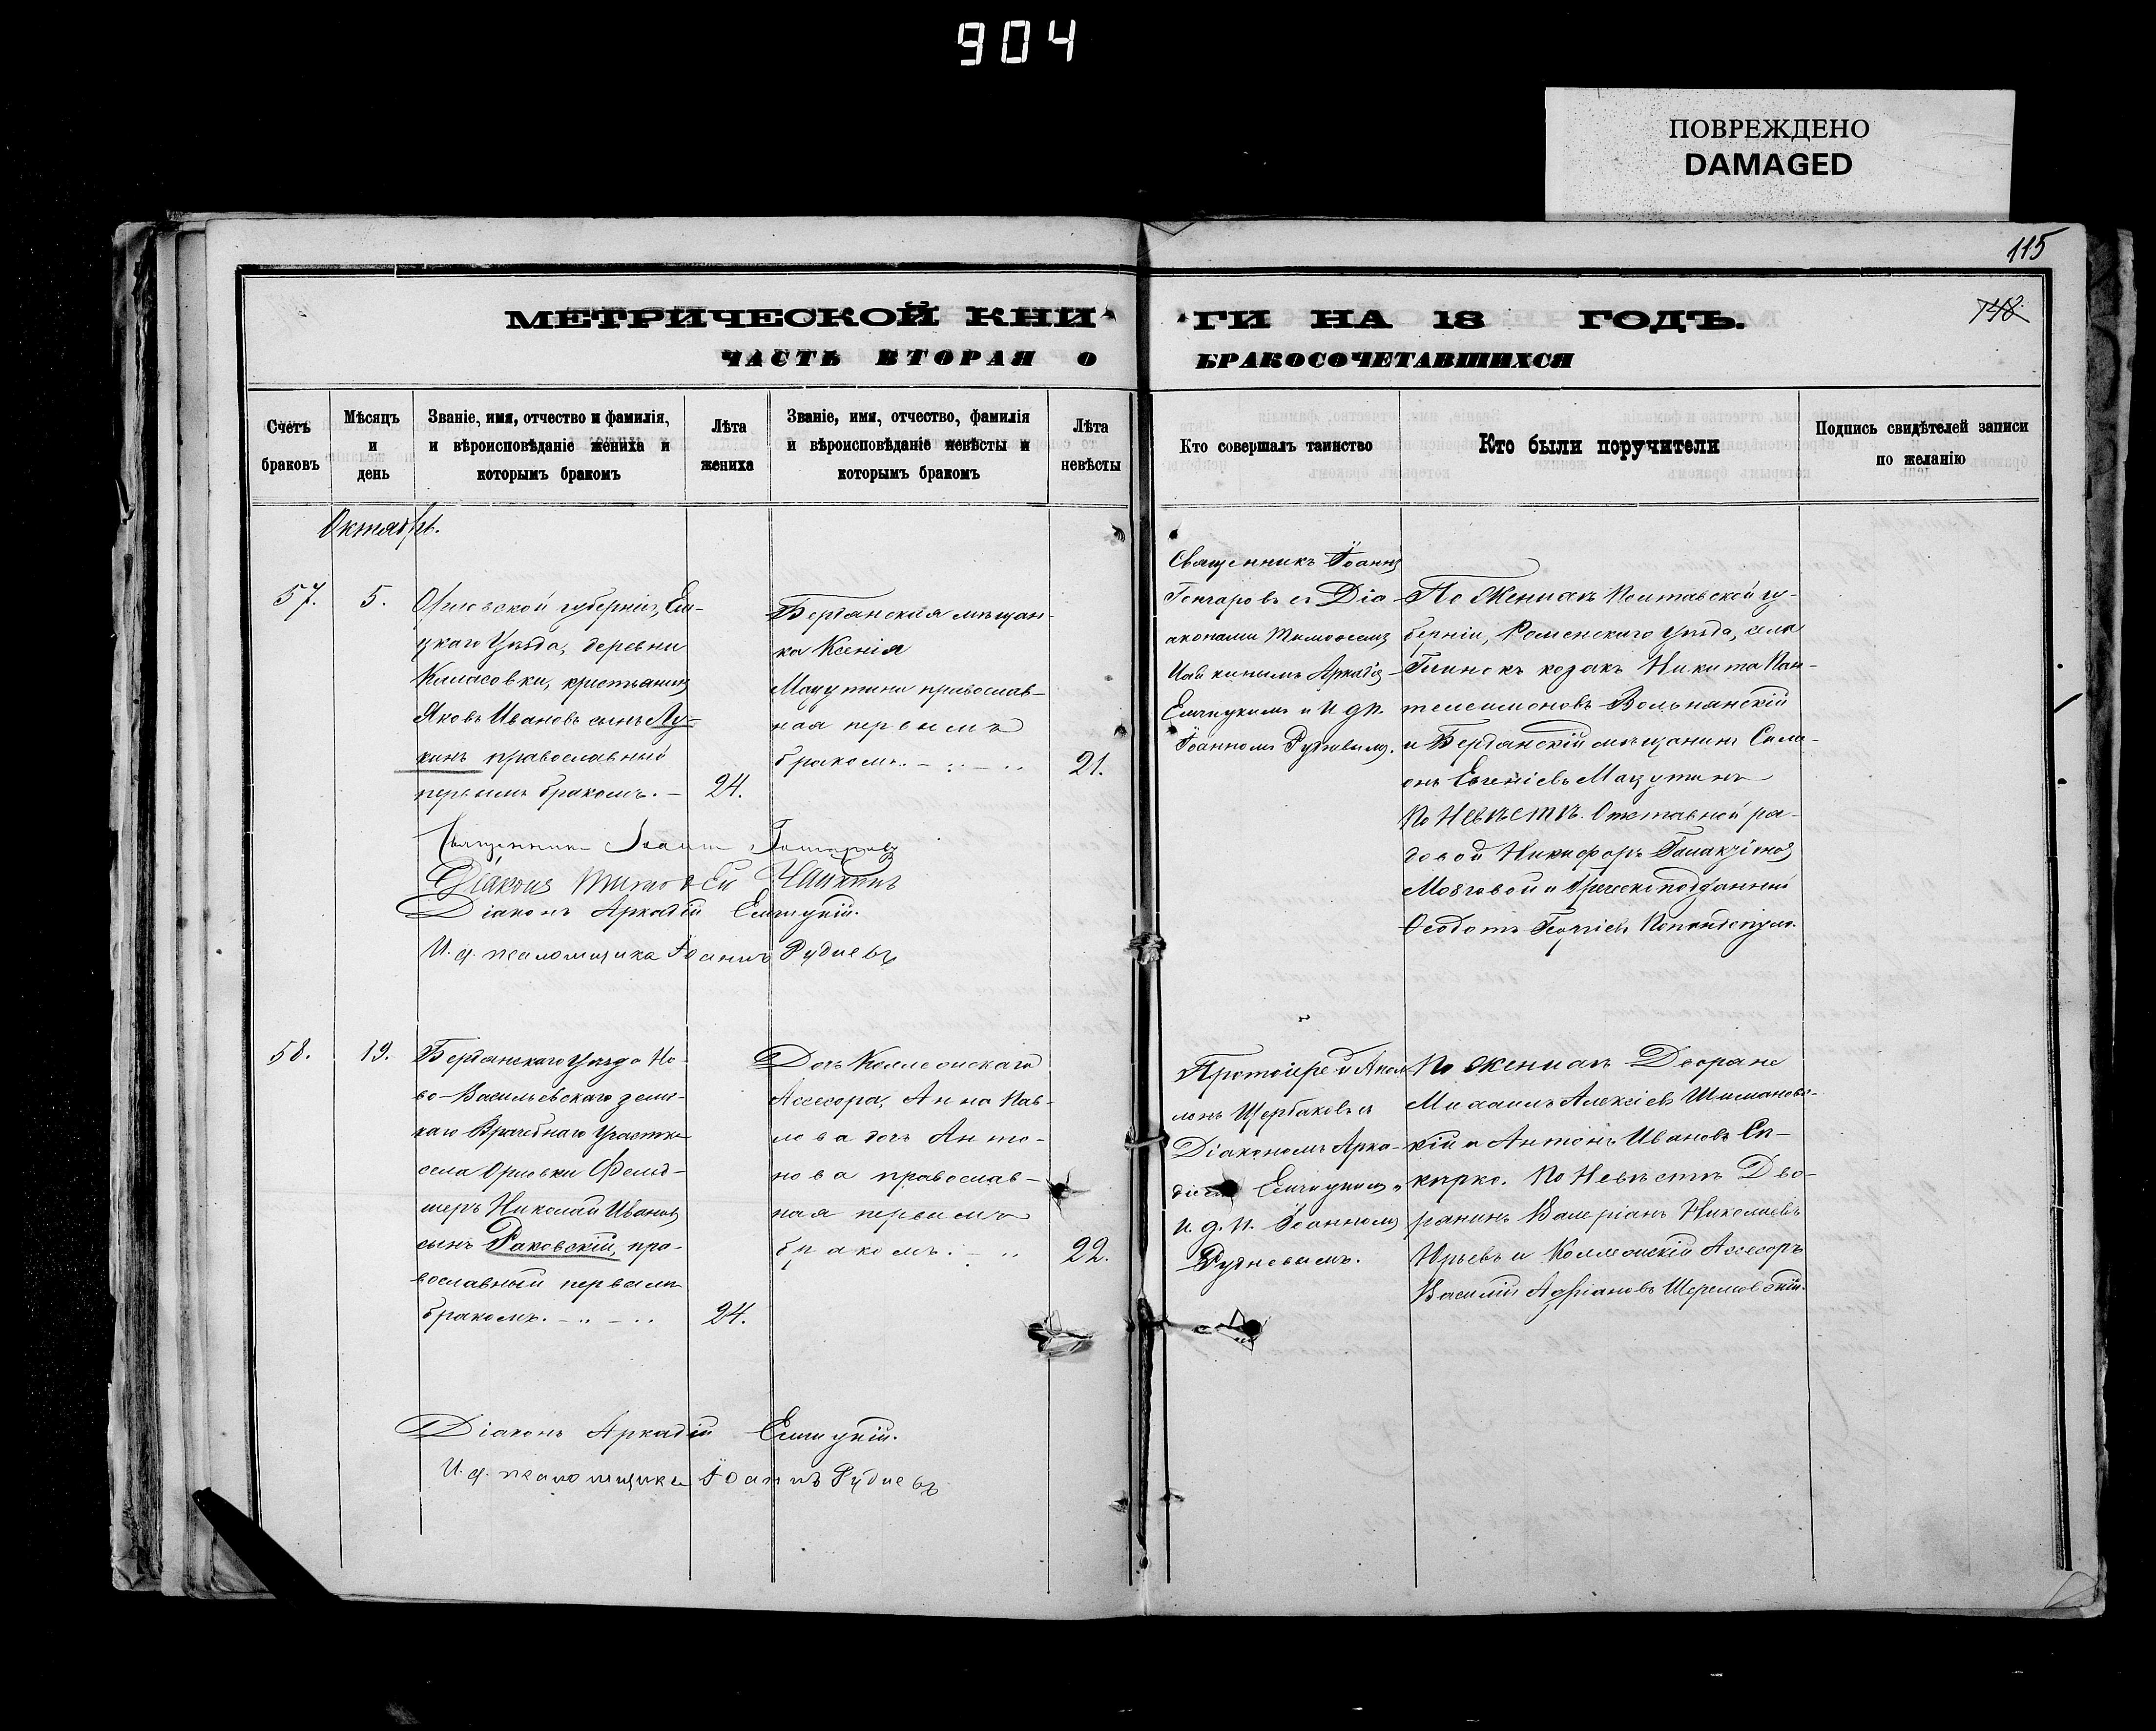 904
ПОВРЕЖДЕНО
DAMAGED
115
МЕТРИЧЕСКОЙ КНИ
ГИ НА 18 ГОДЪ.
ЧАСТЬ ВТОРАЯ О
БРАКОСОЧЕТАВШИХСЯ
Счетъ
браковъ
Мѣсяцъ
и
день
Званіе, имя, отчество и фамилія,
и вѣроисповѣданіе жениха и
которымъ бракомъ
Лѣта
жениха
Званіе, имя, отчество, фамилія
и вѣроисповѣданіе невѣсты и
которымъ бракомъ
Лѣта
невѣсты
Кто совершалъ таинство
Кто были поручители
Подпись свидѣтелей записи
по желанію
Октябрь.
57.
5.
Орловской губерніи, Ел-
цкаго Уѣзда, деревни
крестьянинъ
Яковъ Ивановъ сынъ Лу-
кинъ православный
первымъ бракомъ. –
24.
Бердянская мѣщан-
ка Ксенія
Мазутина православ-
ная первымъ
бракомъ. –
21.
Священникъ Іоаннъ
Гончаровъ съ Діа-
конами Тимоѳеемъ
Чайкинымъ Аркадіемъ
Елчицкимъ и И. д. п.
Іоанномъ Рудневымъ.
По Женихѣ Полтавской гу-
берніи, Роменскаго уѣзда, села
Глинскъ козакъ Никита Пан-
телеимоновъ Вольнянскій
и Бердянскій мѣщанинъ Симе-
онъ Евгеніевъ Мазутинъ
По Невѣстѣ. Отставной ря-
довой Никифоръ Галактіоновъ
Мозговой и Греческоподданный
Ѳеодотъ Георгіевъ
Священникъ Іоаннъ Гончаровъ
Діаконъ Тимоѳей Чайкинъ
Діаконъ Аркадій Елчицкій.
И. д. псаломщика Іоаннъ Рудневъ
58.
19.
Бердянскаго Уѣзда Но-
во-Васильевскаго земс-
каго Врачебнаго Участка
села Орловки Фельд-
шеръ Николай Ивановъ
сынъ Раковскій, пра-
вославный первымъ
бракомъ. –
24.
Дочь Коллежскаго
Ассесора, Анна Пав-
лова дочь Анто-
нова православ-
ная первымъ
бракомъ. –
22.
Протоіерей Апол-
лонъ Щербаковъ съ
Діакономъ Арка-
діемъ Елчицкимъ и
И. д. п. Іоанномъ
Рудневымъ.
По Женихѣ Дворяне
Михаилъ Алексіевъ Шимановс-
кій и Антонъ Ивановъ
По Невѣстѣ Дво-
рянинъ Валеріанъ Николаевъ
Юрьевъ и Коллежскій Ассесоръ
Василій Адріановъ
Діаконъ Аркадій Елчицкій.
И. д. псаломщика Іоаннъ Рудневъ